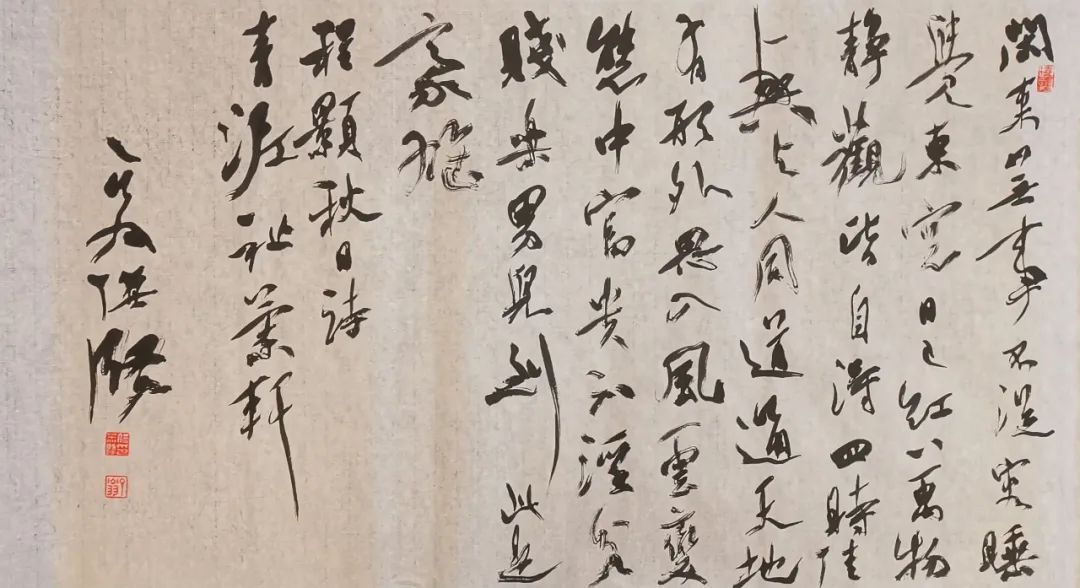 閑来無事不從容睡
覺東窗日已红萬物
靜觀皆自得四時佳
興与人同道通天地
有形外思入風雲變
態中富贵不淫貧
賤樂男兒到此是
豪雄
程顥秋日詩
軒